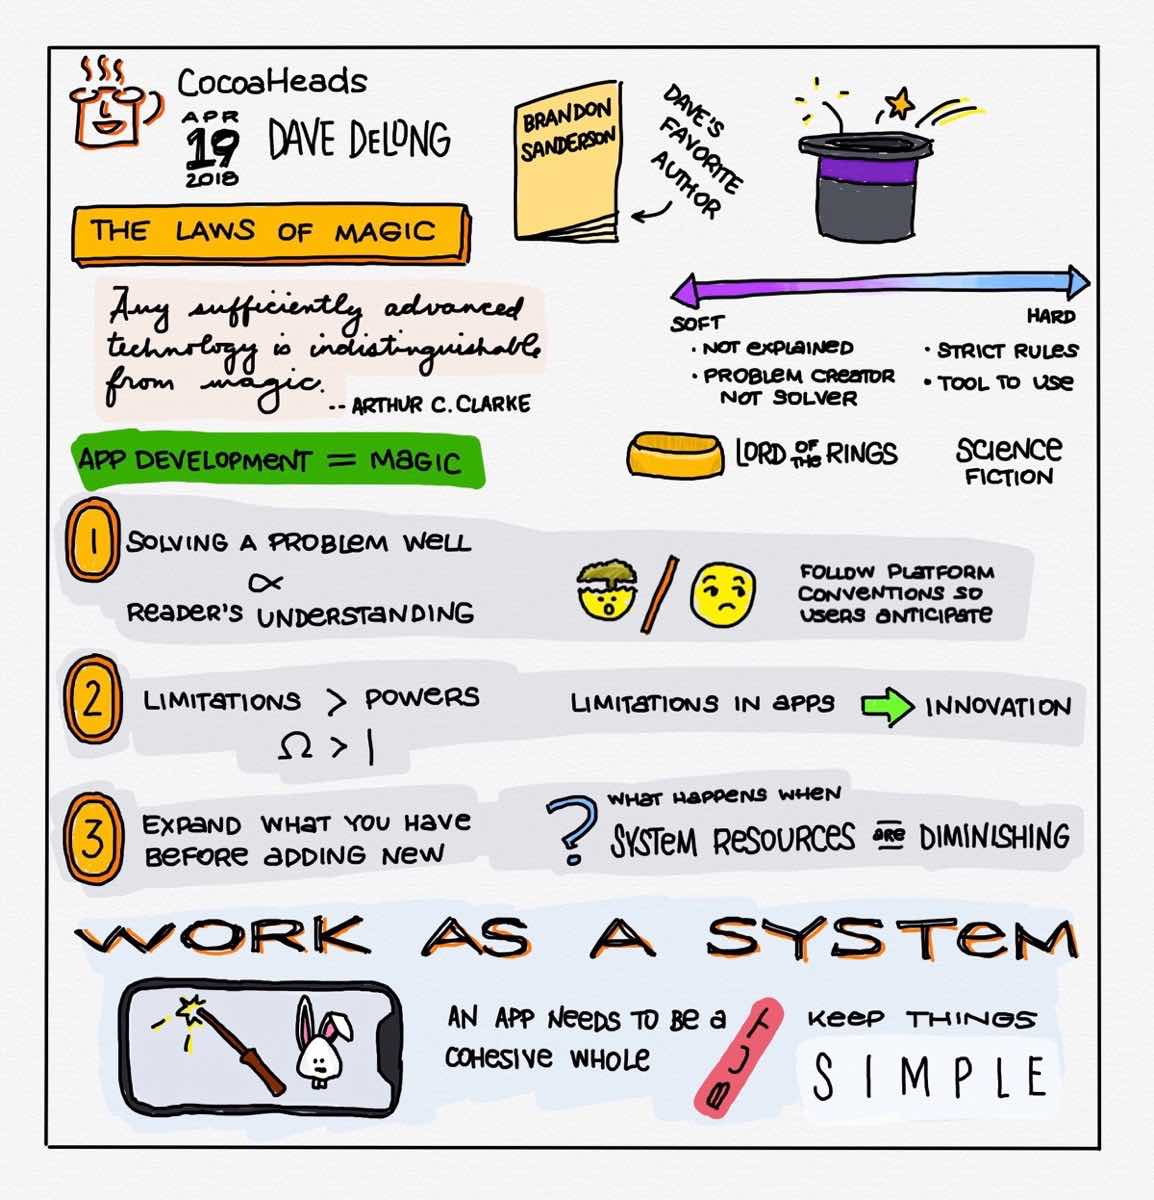 CocoaHeads
APR
19
2018
DAVE DELONG
BRANDON
SANDERSON
DAVE'S
FAVORITE
AUTHOR
THE LAWS OF MAGIC
Any sufficiently advanced
technology is indistinguishable
from magic.
-- ARTHUR C. CLARKE
SOFT
• NOT EXPLAINED
• PROBLEM CREATOR
NOT SOLVER
HARD
• STRICT RULES
• TOOL TO USE
LORD OF THE RINGS
SCIENCE
FICTION
APP DEVELOPMENT = MAGIC
1
SOLVING A PROBLEM WELL
∝
READER'S UNDERSTANDING
/
FOLLOW PLATFORM
CONVENTIONS SO
USERS ANTICIPATE
2
LIMITATIONS > POWERS
Ω > |
LIMITATIONS IN APPS
INNOVATION
3
EXPAND WHAT YOU HAVE
BEFORE ADDING NEW
?
WHAT HAPPENS WHEN
SYSTEM RESOURCES ARE DIMINISHING
WORK AS A SYSTEM
AN APP NEEDS TO BE A
COHESIVE WHOLE
BUT
KEEP THINGS
SIMPLE